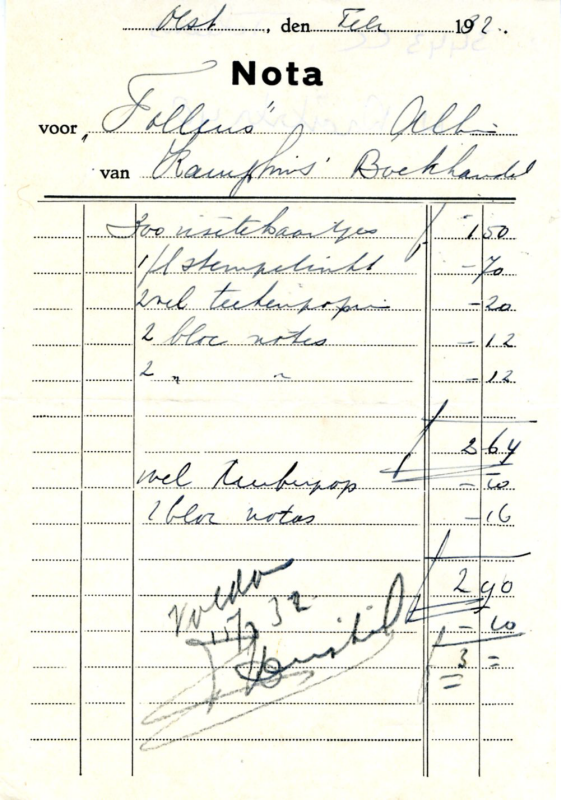 Olst, den Feb 1932.
Nota
voor „Follens"
van Kamphuis' Boekhandel
300 visitekaartjes f 1 50
1 fl stempelinkt - 70
2 vel teekenpapier - 20
2 bloc notes - 12
2 " " - 12
f 2 64
vel - 10
2 bloc notes - 16
f 2 90
- 10
f 3 =
Voldaan
32